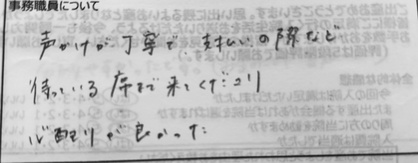 事務職員について
声かけが丁寧で、支払いの際など
待っている席まで来てくださり
心配りが良かった